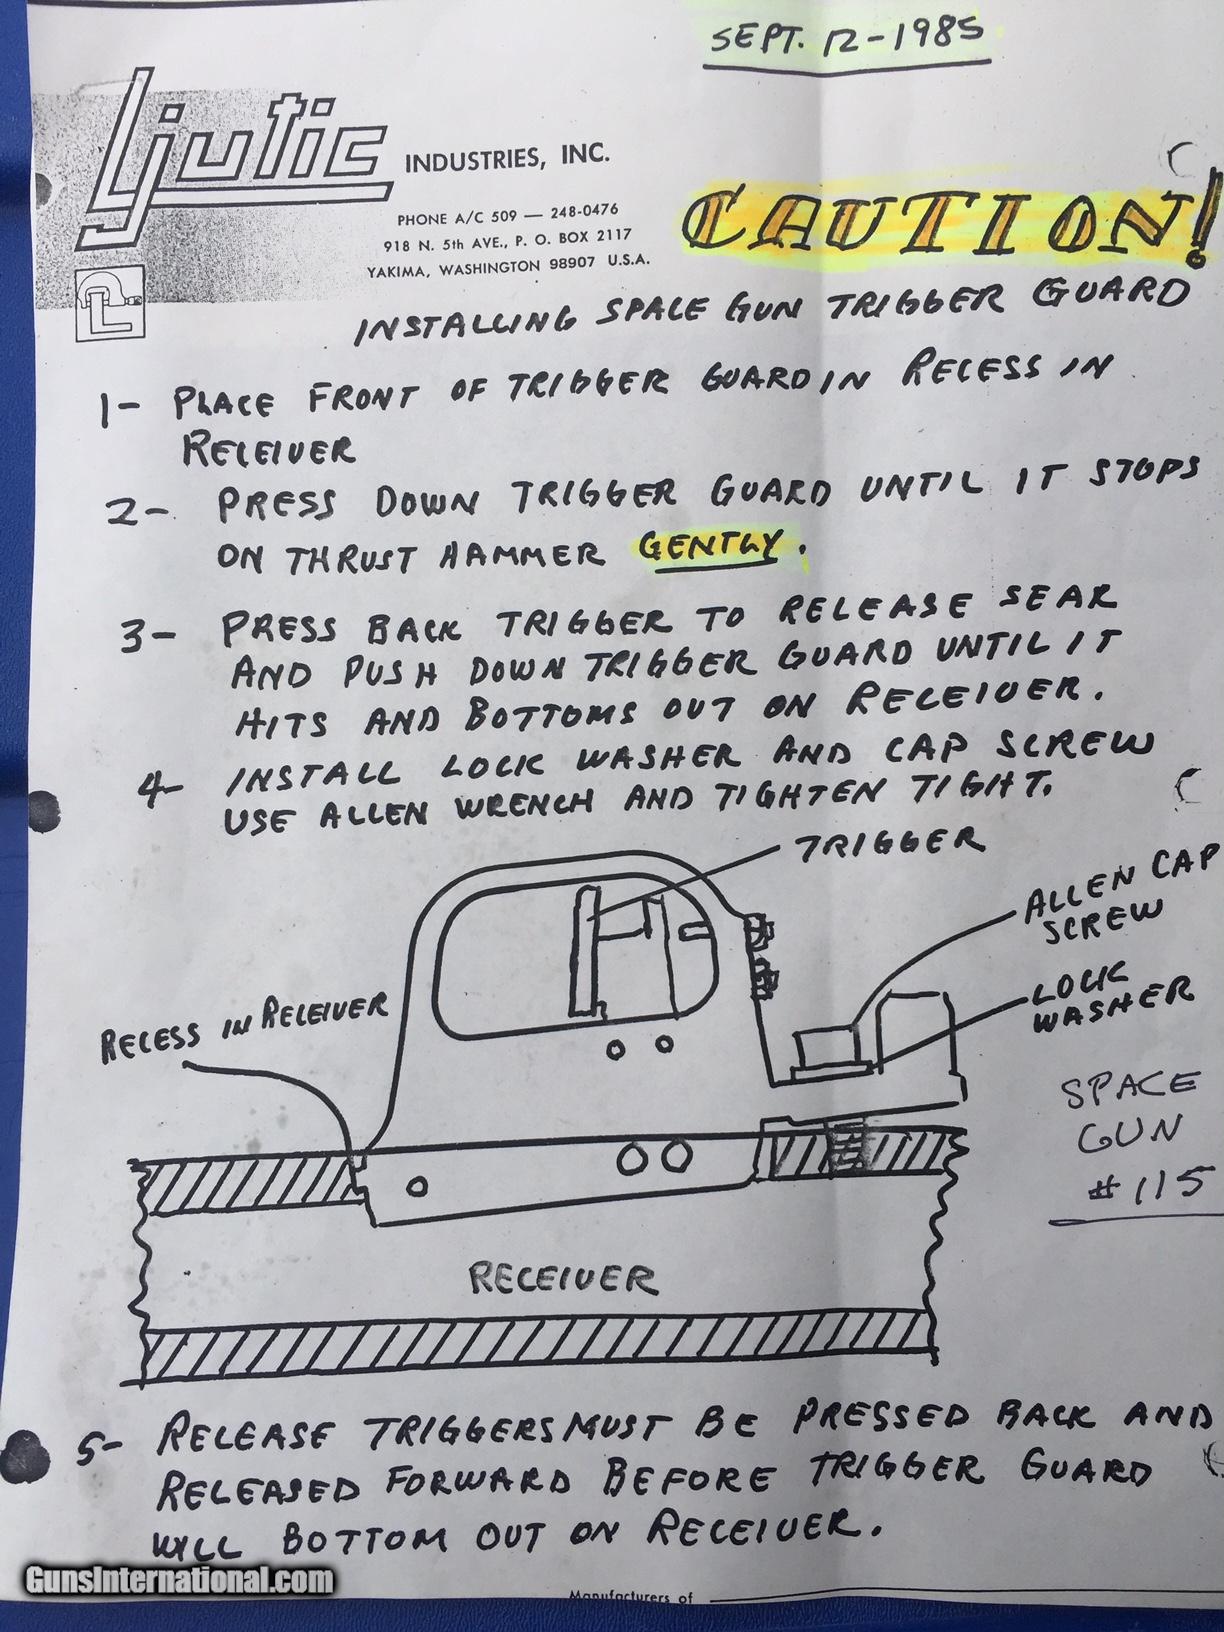 SEPT. 12-1985
Ljutic INDUSTRIES, INC.
PHONE A/C 509 — 248-0476
918 N. 5th AVE., P. O. BOX 2117
YAKIMA, WASHINGTON 98907 U.S.A.
CAUTION!
INSTALLING SPACE GUN TRIGGER GUARD
1- PLACE FRONT OF TRIGGER GUARD IN RECESS IN
RECEIVER
2- PRESS DOWN TRIGGER GUARD UNTIL IT STOPS
ON THRUST HAMMER GENTLY.
3- PRESS BACK TRIGGER TO RELEASE SEAR
AND PUSH DOWN TRIGGER GUARD UNTIL IT
HITS AND BOTTOMS OUT ON RECEIVER.
4- INSTALL LOCK WASHER AND CAP SCREW
USE ALLEN WRENCH AND TIGHTEN TIGHT.
TRIGGER
ALLEN CAP
SCREW
LOCK
WASHER
RECESS IN RECEIVER
SPACE
GUN
#115
RECEIVER
5- RELEASE TRIGGERS MUST BE PRESSED BACK AND
RELEASED FORWARD BEFORE TRIGGER GUARD
WILL BOTTOM OUT ON RECEIVER.
GunsInternational.com
Manufacturers of